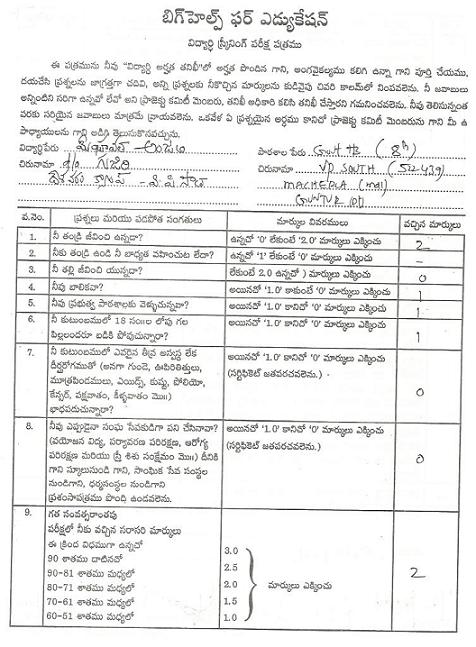 బిగ్‌హెల్ప్ ఫర్ ఎడ్యుకేషన్
విద్యార్థి స్క్రీనింగ్ పరీక్ష పత్రము
ఈ పత్రమును నీవు "విద్యార్థి అర్హత తనిఖీ"లో అర్హత పొందిన గాని, అంగవైకల్యము కలిగి ఉన్నా గాని పూర్తి చేయుము,
దయచేసి ప్రశ్నలను జాగ్రత్తగా చదివి, అన్ని ప్రశ్నలకు నీకొచ్చిన మార్కులను కుడివైపు చివరి కాలమ్‌లో నింపవలెను. నీ జవాబులు
అన్నింటిని సరిగా ఉన్నవో లేవో అని ప్రాజెక్టు కమిటీ మెంబరు, తనిఖీ అధికారి కలిసి తనిఖీ చేస్తారని గమనించవలెను. నీవు తెలిసున్నంత
వరకు సరియైన జవాబులు మాత్రమే వ్రాయవలెను. ఒకవేళ ఏ ప్రశ్నయైన అర్థము కానిచో ప్రాజెక్టు కమిటీ మెంబరును గాని మీ ఉ
పాధ్యాయులను గాని అడిగి తెలుసుకొనవచ్చును.
విద్యార్థిపేరు పాఠశాల పేరు Govt HS (8th)
చిరునామా చిరునామా VP SOUTH (522439)
MACHERLA (Mdl)
GUNTUR (Dt)
వ.నెం. ప్రశ్నలు మరియు పదపోత సంగతులు మార్కుల వివరములు వచ్చిన మార్కులు
1. నీ తండ్రి జీవించి ఉన్నదా? ఉన్నచో '0' లేకుంటే '2.0' మార్కులు ఎక్కించు 2
2. నీకు తండ్రి ఉండి నీ బాధ్యత వహించుట లేదా? ఉన్నచో '1' లేకుంటే '0' మార్కులు ఎక్కించు –
3. నీ తల్లి జీవించి యున్నదా? లేకుంటే 2.0 ఉన్నచో ) మార్కులు ఎక్కించు 0
4. నీవు బాలికవా? అయినచో '1.0' కాకుంటే '0' మార్కులు ఎక్కించు 1
5. నీవు ప్రభుత్వ పాఠశాలకు వెళ్ళుచున్నవా? అయినచో '1.0' కానిచో '0' మార్కులు ఎక్కించు 1
6. నీ కుటుంబములో 18 సం॥ల లోపు గల
పిల్లలందరూ బడికి పోవుచున్నారా? అయినచో '1.0' కానిచో '0' మార్కులు ఎక్కించు 1
7. నీ కుటుంబములో ఎవరైన తీవ్ర అస్వస్థ లేక
దీర్ఘరోగముతో (అనగా గుండె, ఊపిరితిత్తులు,
మూత్రపిండములు, ఎయిడ్స్, కుష్ఠు, పోలియో,
కేన్సర్, పక్షవాతం, కీళ్ళవాతం మొ॥)
భాధపడుచున్నారా? అయినచో '1.0' కానిచో '0' మార్కులు ఎక్కించు
(సర్టిఫికెట్ జతపరచవలెను.) 0
8. నీవు ఎప్పుడైనా సంఘ సేవకుడిగా పని చేసినావా?
(వయోజన విద్య, పర్యావరణ పరిరక్షణ, ఆరోగ్య
పరిరక్షణ మరియు స్త్రీ శిశు సంక్షేమం మొ॥) దీనికి
గాని స్కూలునుండి గాని, సాంఘిక సేవ సంస్థల
నుండిగాని, ధర్మసంస్థల నుండిగాని
ప్రశంసాపత్రము పొంది ఉండవలెను. అయినచో '1.0' కానిచో '0' మార్కులు ఎక్కించు
(సర్టిఫికెట్ జతపరచవలెను.) 0
9. గత సంవత్సరాంతపు
పరీక్షలో నీకు వచ్చిన సరాసరి మార్కులు
ఈ క్రింద విధముగా ఉన్నచో
90 శాతము దాటినచో 3.0
90-81 శాతము మధ్యలో 2.5
80-71 శాతము మధ్యలో 2.0 మార్కులు ఎక్కించు 2
70-61 శాతము మధ్యలో 1.5
60-51 శాతము మధ్యలో 1.0